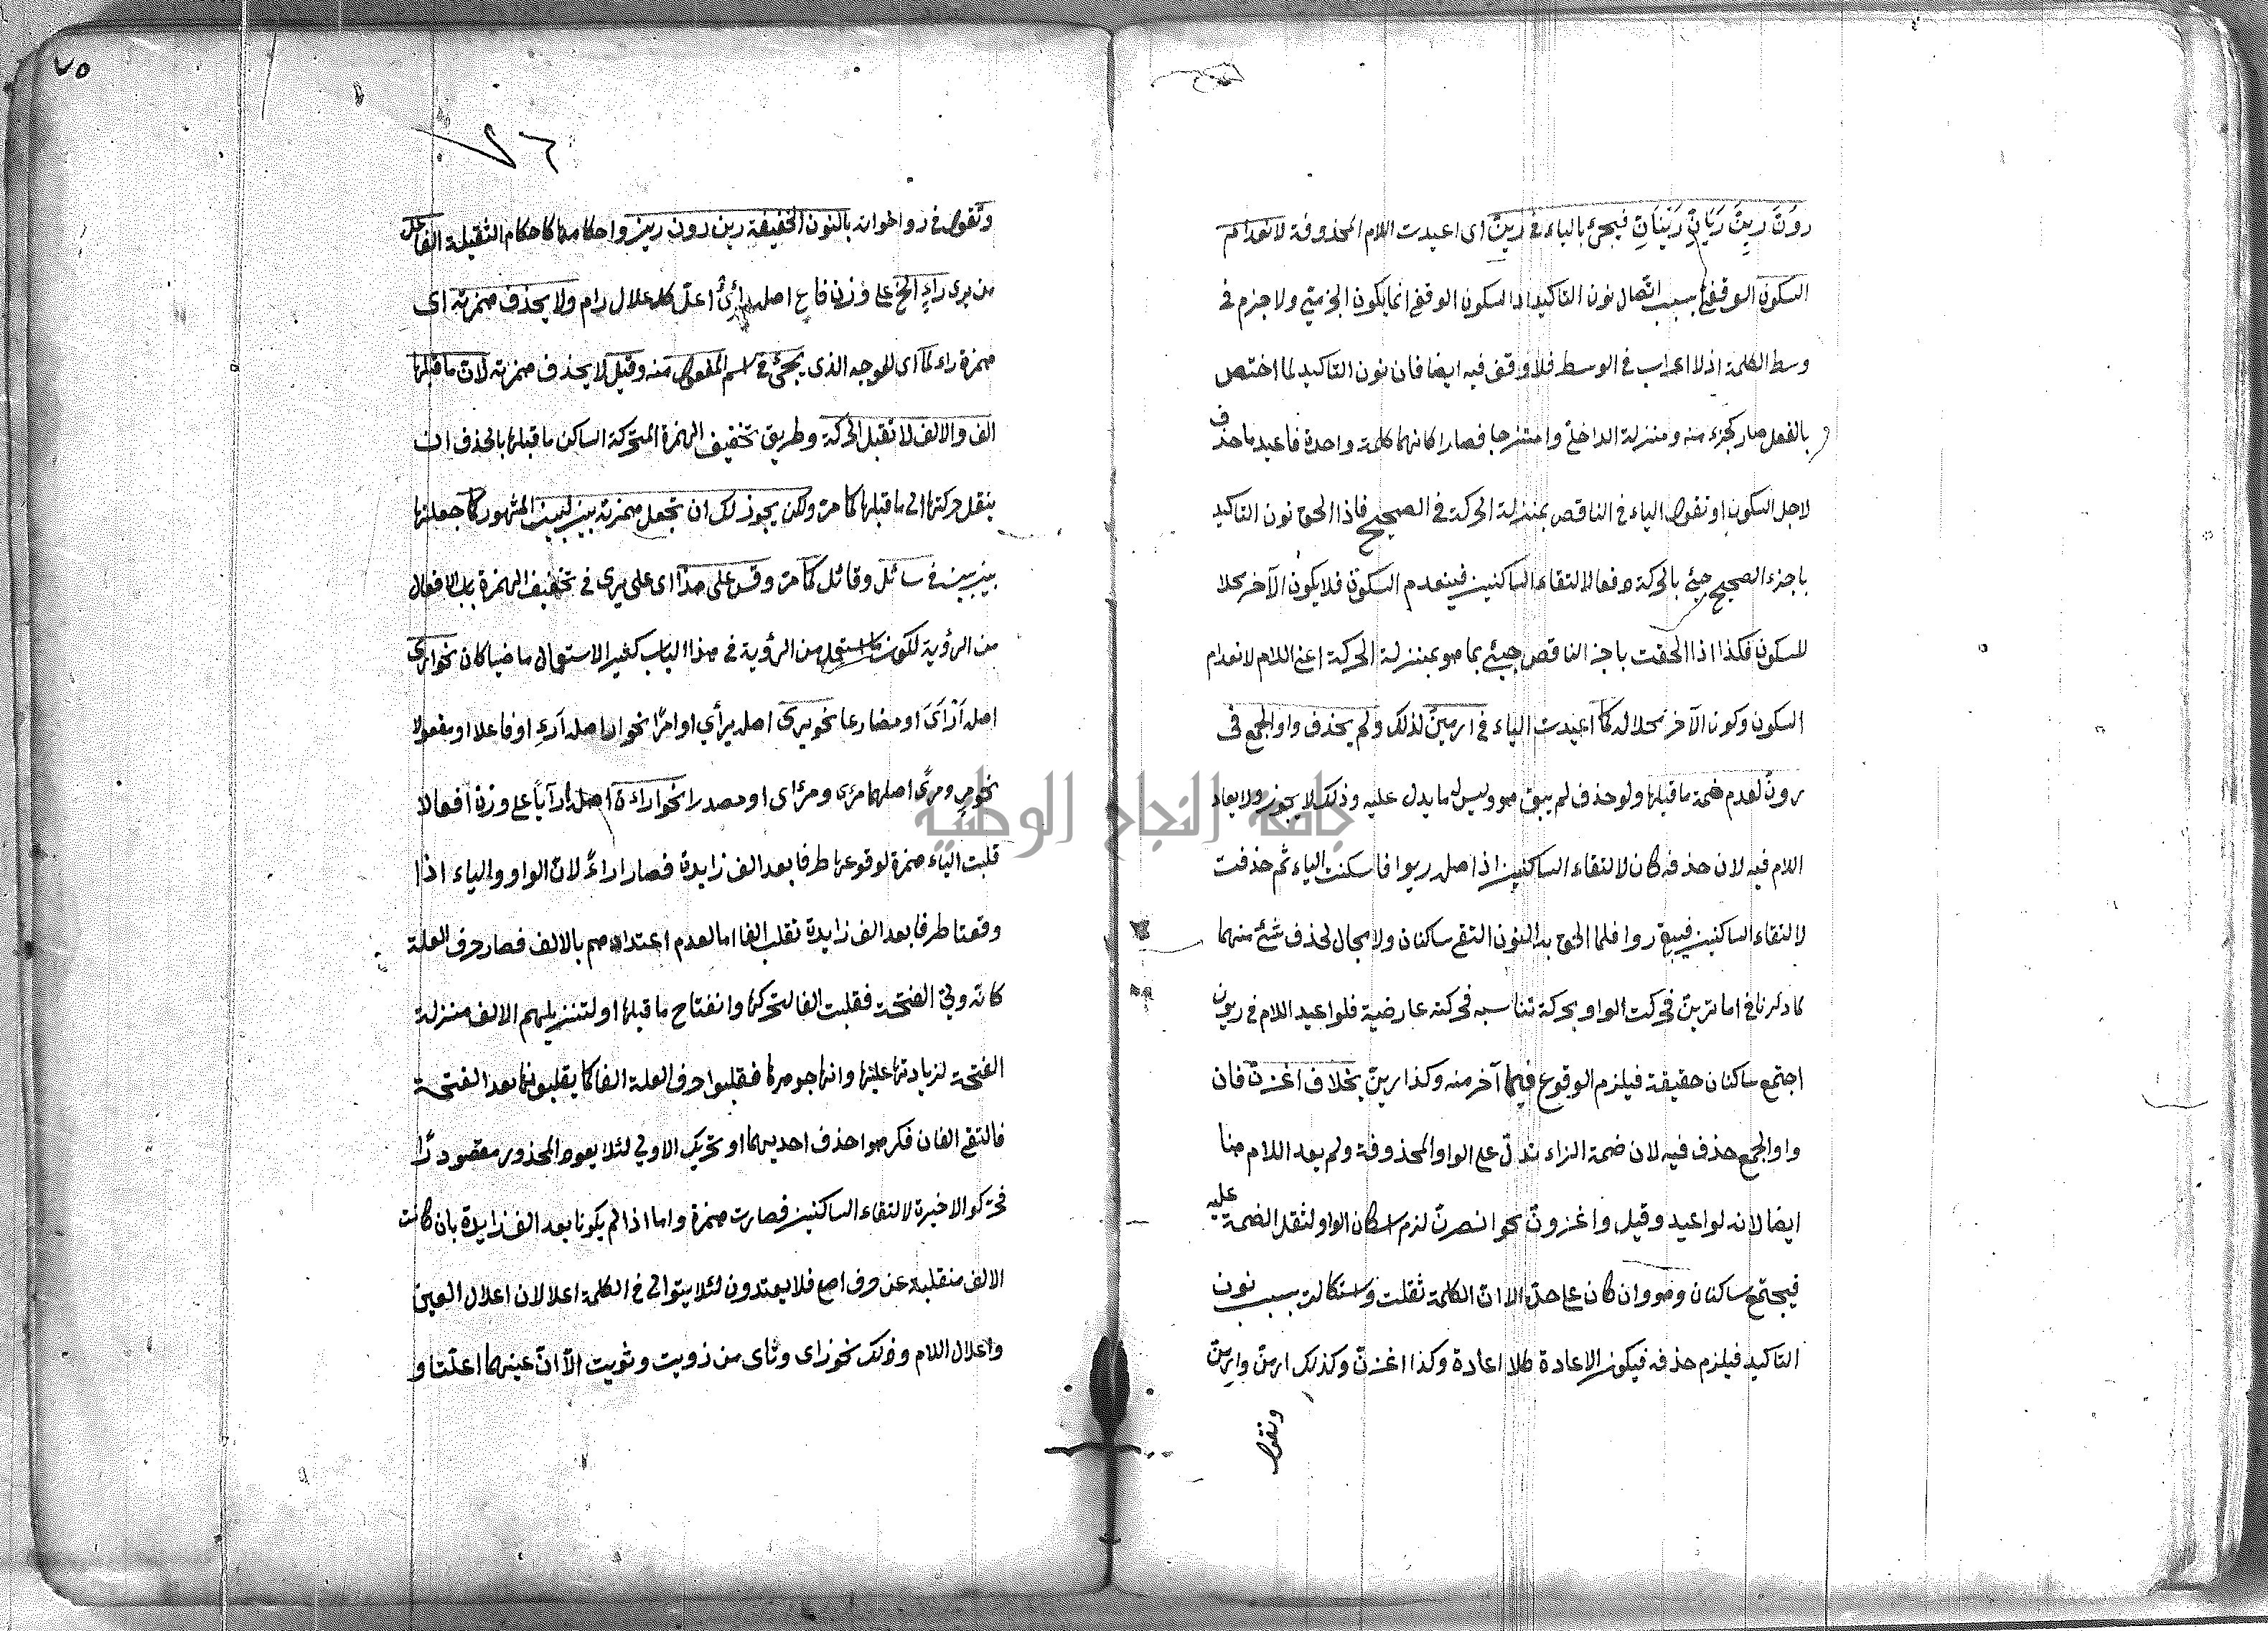 رونّ رينّ ريانّ رينانّ فيجئ بالياء في رينّ اى اعيدت اللام المحذوفة لانعدام
السكون الوقفي بسبب اتصال نون التاكيد اذ السكون الوقفى انما يكون الجزمتي ولا جزم فى
وسط الكلمة اذ لا اعراب في الوسط فلا وقف فيه ايضا فان نون التاكيد لما اختص
بالفعل صار كجزء منه ومنزلة الداخل وامتزجا فصارا كانهما كلمة واحدة فاعيد ما حذف
لاجل السكون او نقول الياء في الناقص بمنزلة الحركة في الصحيح فاذا الحق نون التاكيد
باخر الصحيح جيئ بالحركة دفعا لالتقاء الساكنين فينعدم السكون فلا يكون الآخر محلا
للسكون فكذا اذا الحقت باخر الناقص جيئ بما هو بمنزلة الحركة اعني اللام لانعدام
السكون وكون الآخر محلا له كما اعيدت الياء في ارمينّ لذلك ولم يحذف واو الجمع فى
رونّ لعدم ضمة ما قبلها ولو حذف لم يبق هو وليس له ما يدل عليه وذلك لا يجوز ولا يعاد
اللام فيه لان حذفه كان لالتقاء الساكنين اذ اصله ريوا فاسكنت الياء ثم حذفت
لالتقاء الساكنين فبقي روا فلما الحق به النون التقى ساكنان ولا مجال لحذف شئ منهما
كما ذكرنا في اما ترينّ فحركت الواو بحركة تناسبه فحركته عارضية فلو اعيد اللام في ريون
اجتمع ساكنان حقيقة فيلزم الوقوع فيما آخر منه وكذا رينّ بخلاف اغزنّ فان
واو الجمع حذف فيه لان ضمة الزاء تدلّ على الواو المحذوفة ولم يعد اللام هنا
ايضا لانه لو اعيد وقيل واغزونّ نحو انصرنّ لزم اسكان الواو لثقل الضمة عليه
فيجتمع ساكنان وهو وان كان على حدّه الا انّ الكلمة ثقلت واستكالت بسبب نون
التاكيد فيلزم حذفه فيكون الاعادة كلا اعادة وكذا اغزنّ وكذلك ارمنّ وارمنّ
ونقول
٧٥
٧٦
ونقول في رو اخواته بالنون الخفيفة رين رون رين واحكامها كاحكام الثقيلة الفاعل
من يرى راءٍ الخ على وزن فاعٍ اصله رائىٌ اعلّ كاعلال رام ولا يحذف همزته اى
همزة راء لما اى للوجه الذى يجئ في اسم المفعول منه وقيل لا يحذف همزته لانّ ما قبلها
الف والالف لا تقبل الحركة وطريق تخفيف الهمزة المتحركة الساكن ما قبلها بالحذف ان
ينقل حركتها الى ما قبلها كما مرّ ولكن يجوز لك ان تجعل همزته بين بين المشهور كما جعلتها
بين بين في سائل وقائل كما مرّ وقس على هذا اى على يرى في تخفيف الهمزة باب الافعال
من الرؤية لكون ما استعمل من الرؤية في هذا الباب كثير الاستعمال ماضيا كان نحو ارى
اصله اَرْاَىَ او مضارعا نحو يرى اصله يرأي او امرًا نحو ار اصله اَرءِ او فاعلا او مفعولا
نحو مرٍ ومرًى اصلهما مرئ ومرأى او مصدرا نحو اراءة اصله ارآيًا على وزن افعالا
قلبت الياء همزة لوقوعها طرفا بعد الف زايدة فصار اراءً لانّ الواو والياء اذا
وقعتا طرفا بعد الف زايدة تقلب الفا اما لعدم اعتدادهم بالالف فصار حرف العلة
كانه ولي الفتحة فقلبت الفا لتحركها وانفتاح ما قبلها او لتنزيلهم الالف منزلة
الفتحة لزيادتها عليها وانها جوهرها فقلبوا حرف العلة الفا كما يقلبونها بعد الفتحة
فالتقى الفان فكرهوا حذف احديهما او تحريك الاولي لئلا يعود المحذور مقصودًا
فحركوا الاخيرة لالتقاء الساكنين فصارت همزة واما اذا لم يكونا بعد الف زايدة بان كانت
الالف منقلبة عن حرف اصلي فلا يعتدون لئلا يتوالى في الكلمة اعلالان اعلال العين
واعلال اللام وذلك نحو زاى وثاى من زويت وثويت الّا انّ عينهما اعلّتا و